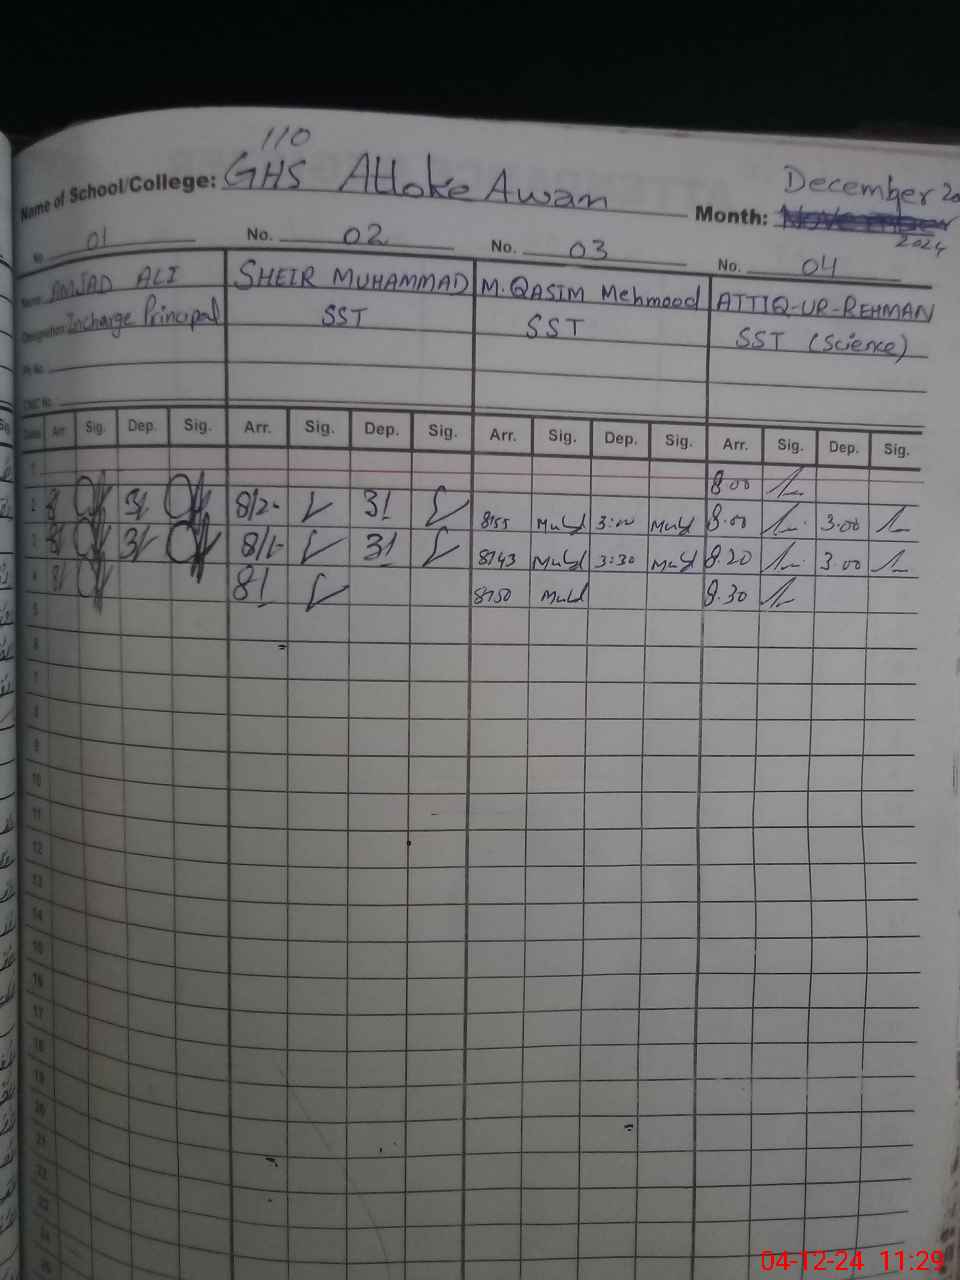 110
Name of School/College: GHS Attoke Awan
December 20
Month: November
2024
No. 01 No. 02 No. 03 No. 04
Name: AMJAD ALI SHEIR MUHAMMAD M.QASIM Mehmood ATTIQ-UR-REHMAN
Designation: Incharge Principal SST SST SST (Science)
CNIC No.
Dates Arr. Sig. Dep. Sig. Arr. Sig. Dep. Sig. Arr. Sig. Dep. Sig. Arr. Sig. Dep. Sig.
1 8.00
2 8/ 3/ 8/2- 3/ 8/55 3:00 8.00 3.00
3 8/ 3/ 8/1- 3/ 8/43 3:30 8.20 3.00
4 8/ 8/ 8/50 8.30
5
6
7
8
9
10
11
12
13
14
15
16
17
18
19
20
21
22
23
24
25
04-12-24 11:29